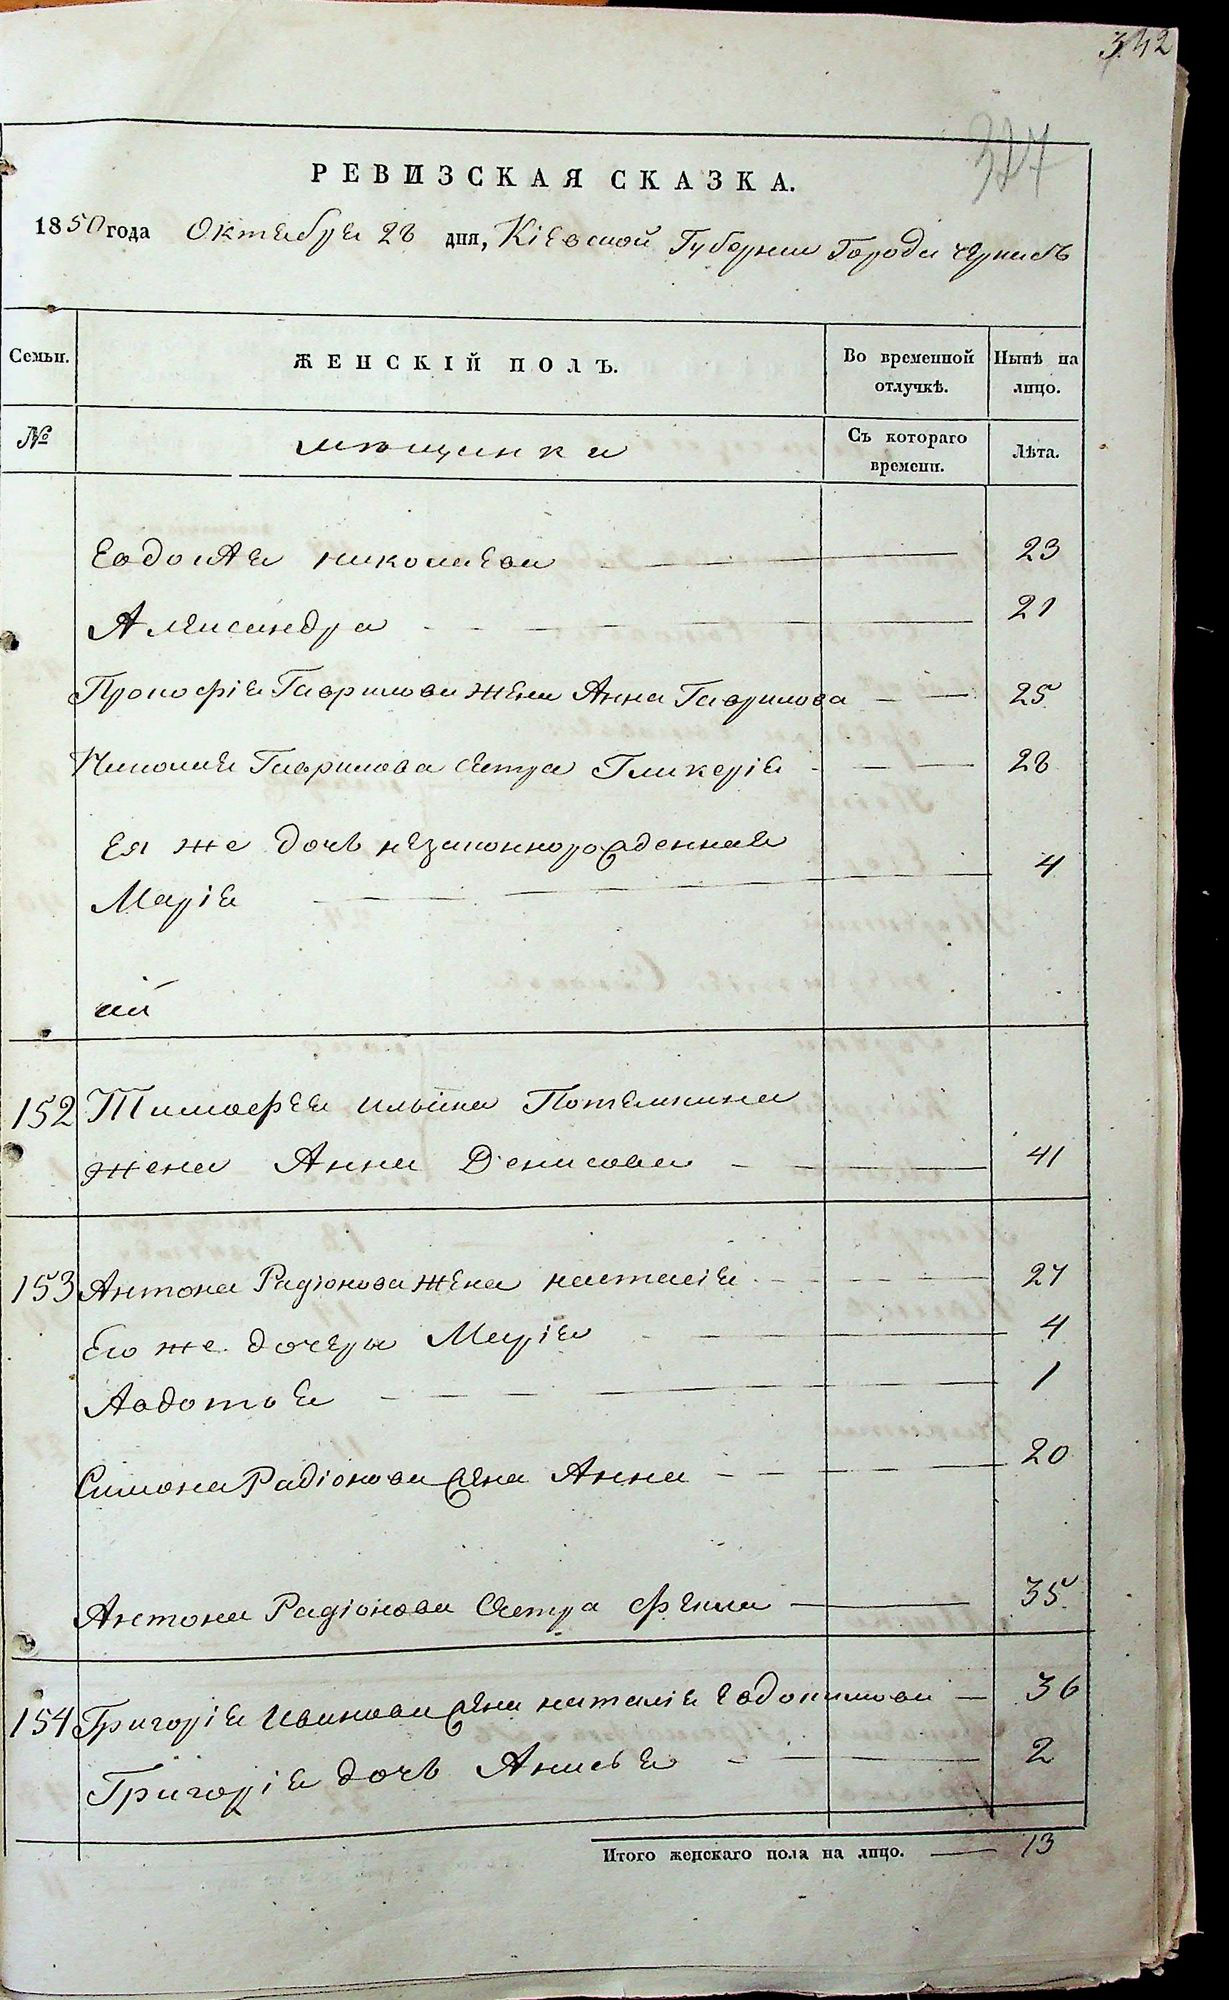 342
327
РЕВИЗСКАЯ СКАЗКА.
1850 года Октября 28 дня, Кіевской Губерніи Города
Семьи.
ЖЕНСКІЙ ПОЛЪ.
Во временной отлучкѣ.
Нынѣ на лицо.
№
мѣщанки
Съ котораго времени.
Лѣта.
Николаева 23
Александра 21
Прокофія Гаврилова жена Анна Гаврилова 25
Николая Гаврилова сестра Гликерія 28
Ея же дочь незаконнорожденная
Марія 4
152 Тимофея Ильина Потемкина
жена Анна Денисова 41
153 Антона Радіонова жена Наталія 27
Его же дочеры Марія 4
Авдотья 1
Симона Радіонова жена Анна 20
Антона Радіонова Сестра Фекла 35
154 Григорія Иванова жена Наталія Евдокимова 36
Григорія дочь Анисья 2
Итого женскаго пола на лицо. 13